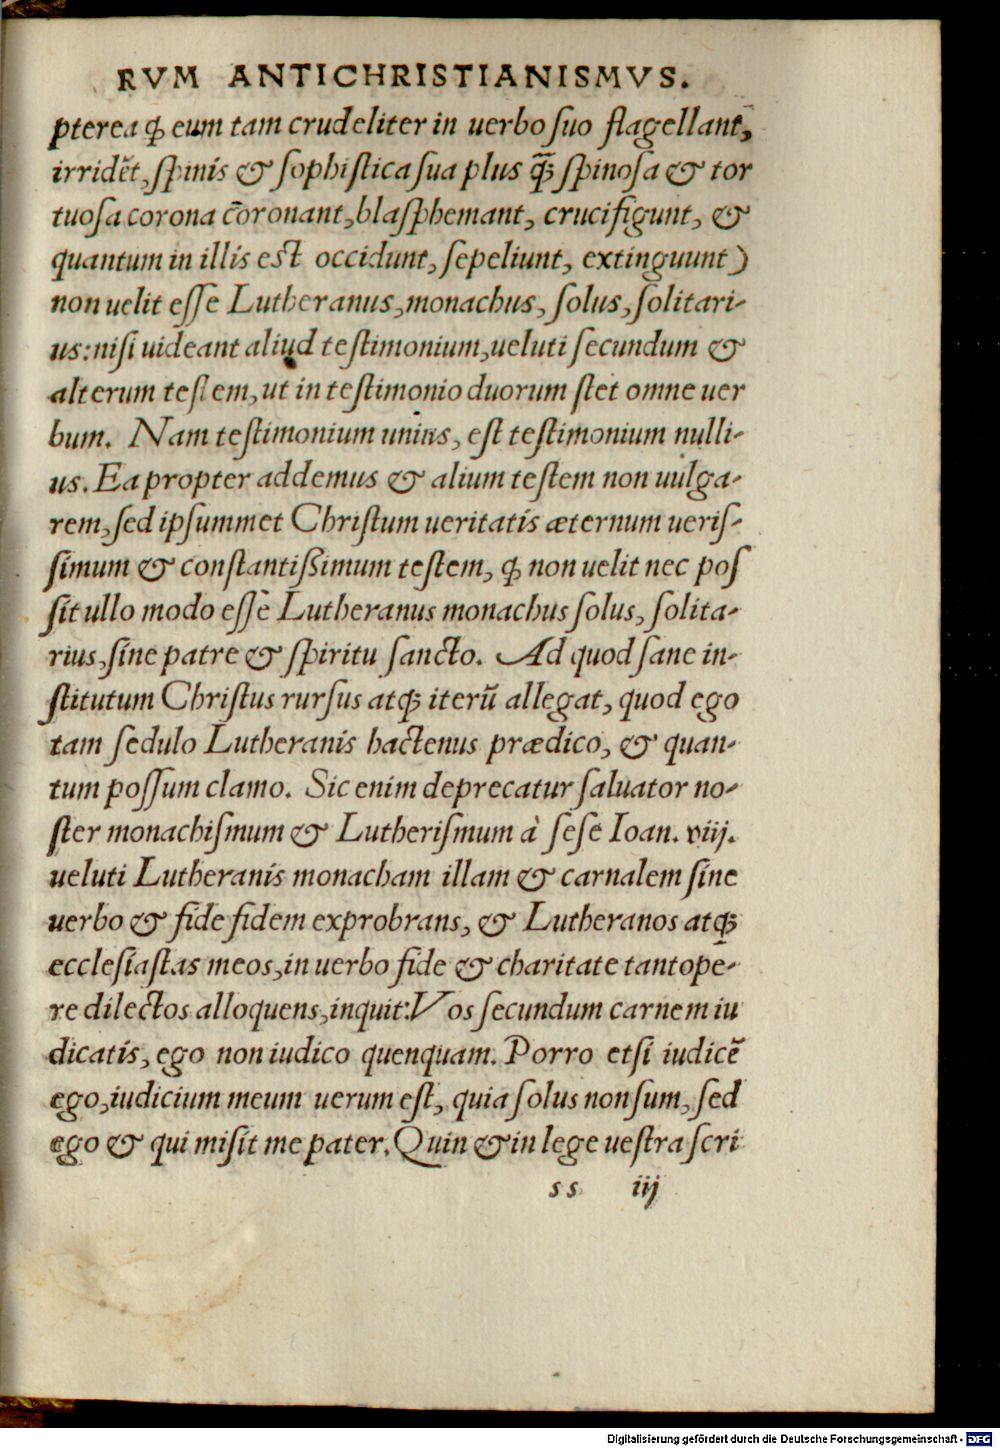 RVM ANTICHRISTIANISMVS.
pterea ꝙ eum tam crudeliter in uerbo suo flagellant,
irridēt, spinis & sophistica sua plus ꝙ̄ spinosa & tor
tuosa corona cōronant, blasphemant, crucifigunt, &
quantum in illis est occidunt, sepeliunt, extinguunt)
non uelit esse Lutheranus, monachus, solus, solitari-
us: nisi uideant aliud testimonium, ueluti secundum &
alterum testem, ut in testimonio duorum stet omne uer
bum. Nam testimonium unius, est testimonium nulli-
us. Ea propter addemus & alium testem non uulga-
rem, sed ipsummet Christum ueritatis æternum ueris-
simum & constantißimum testem, ꝙ non uelit nec pos
sit ullo modo esse Lutheranus monachus solus, solita-
rius, sine patre & spiritu sancto. Ad quod sane in-
stitutum Christus rursus atqꝫ iterū allegat, quod ego
tam sedulo Lutheranis hactenus prædico, & quan-
tum possum clamo. Sic enim deprecatur saluator no-
ster monachismum & Lutherismum à sese Ioan. viij.
ueluti Lutheranis monacham illam & carnalem sine
uerbo & fide fidem exprobrans, & Lutheranos atqꝫ
ecclesiastas meos, in uerbo fide & charitate tantope-
re dilectos alloquens, inquit: Vos secundum carnem iu
dicatis, ego non iudico quenquam. Porro etsi iudicē
ego, iudicium meum uerum est, quia solus non sum, sed
ego & qui misit me pater. Quin & in lege uestra scri
ss iij
Digitalisierung gefördert durch die Deutsche Forschungsgemeinschaft - DFG